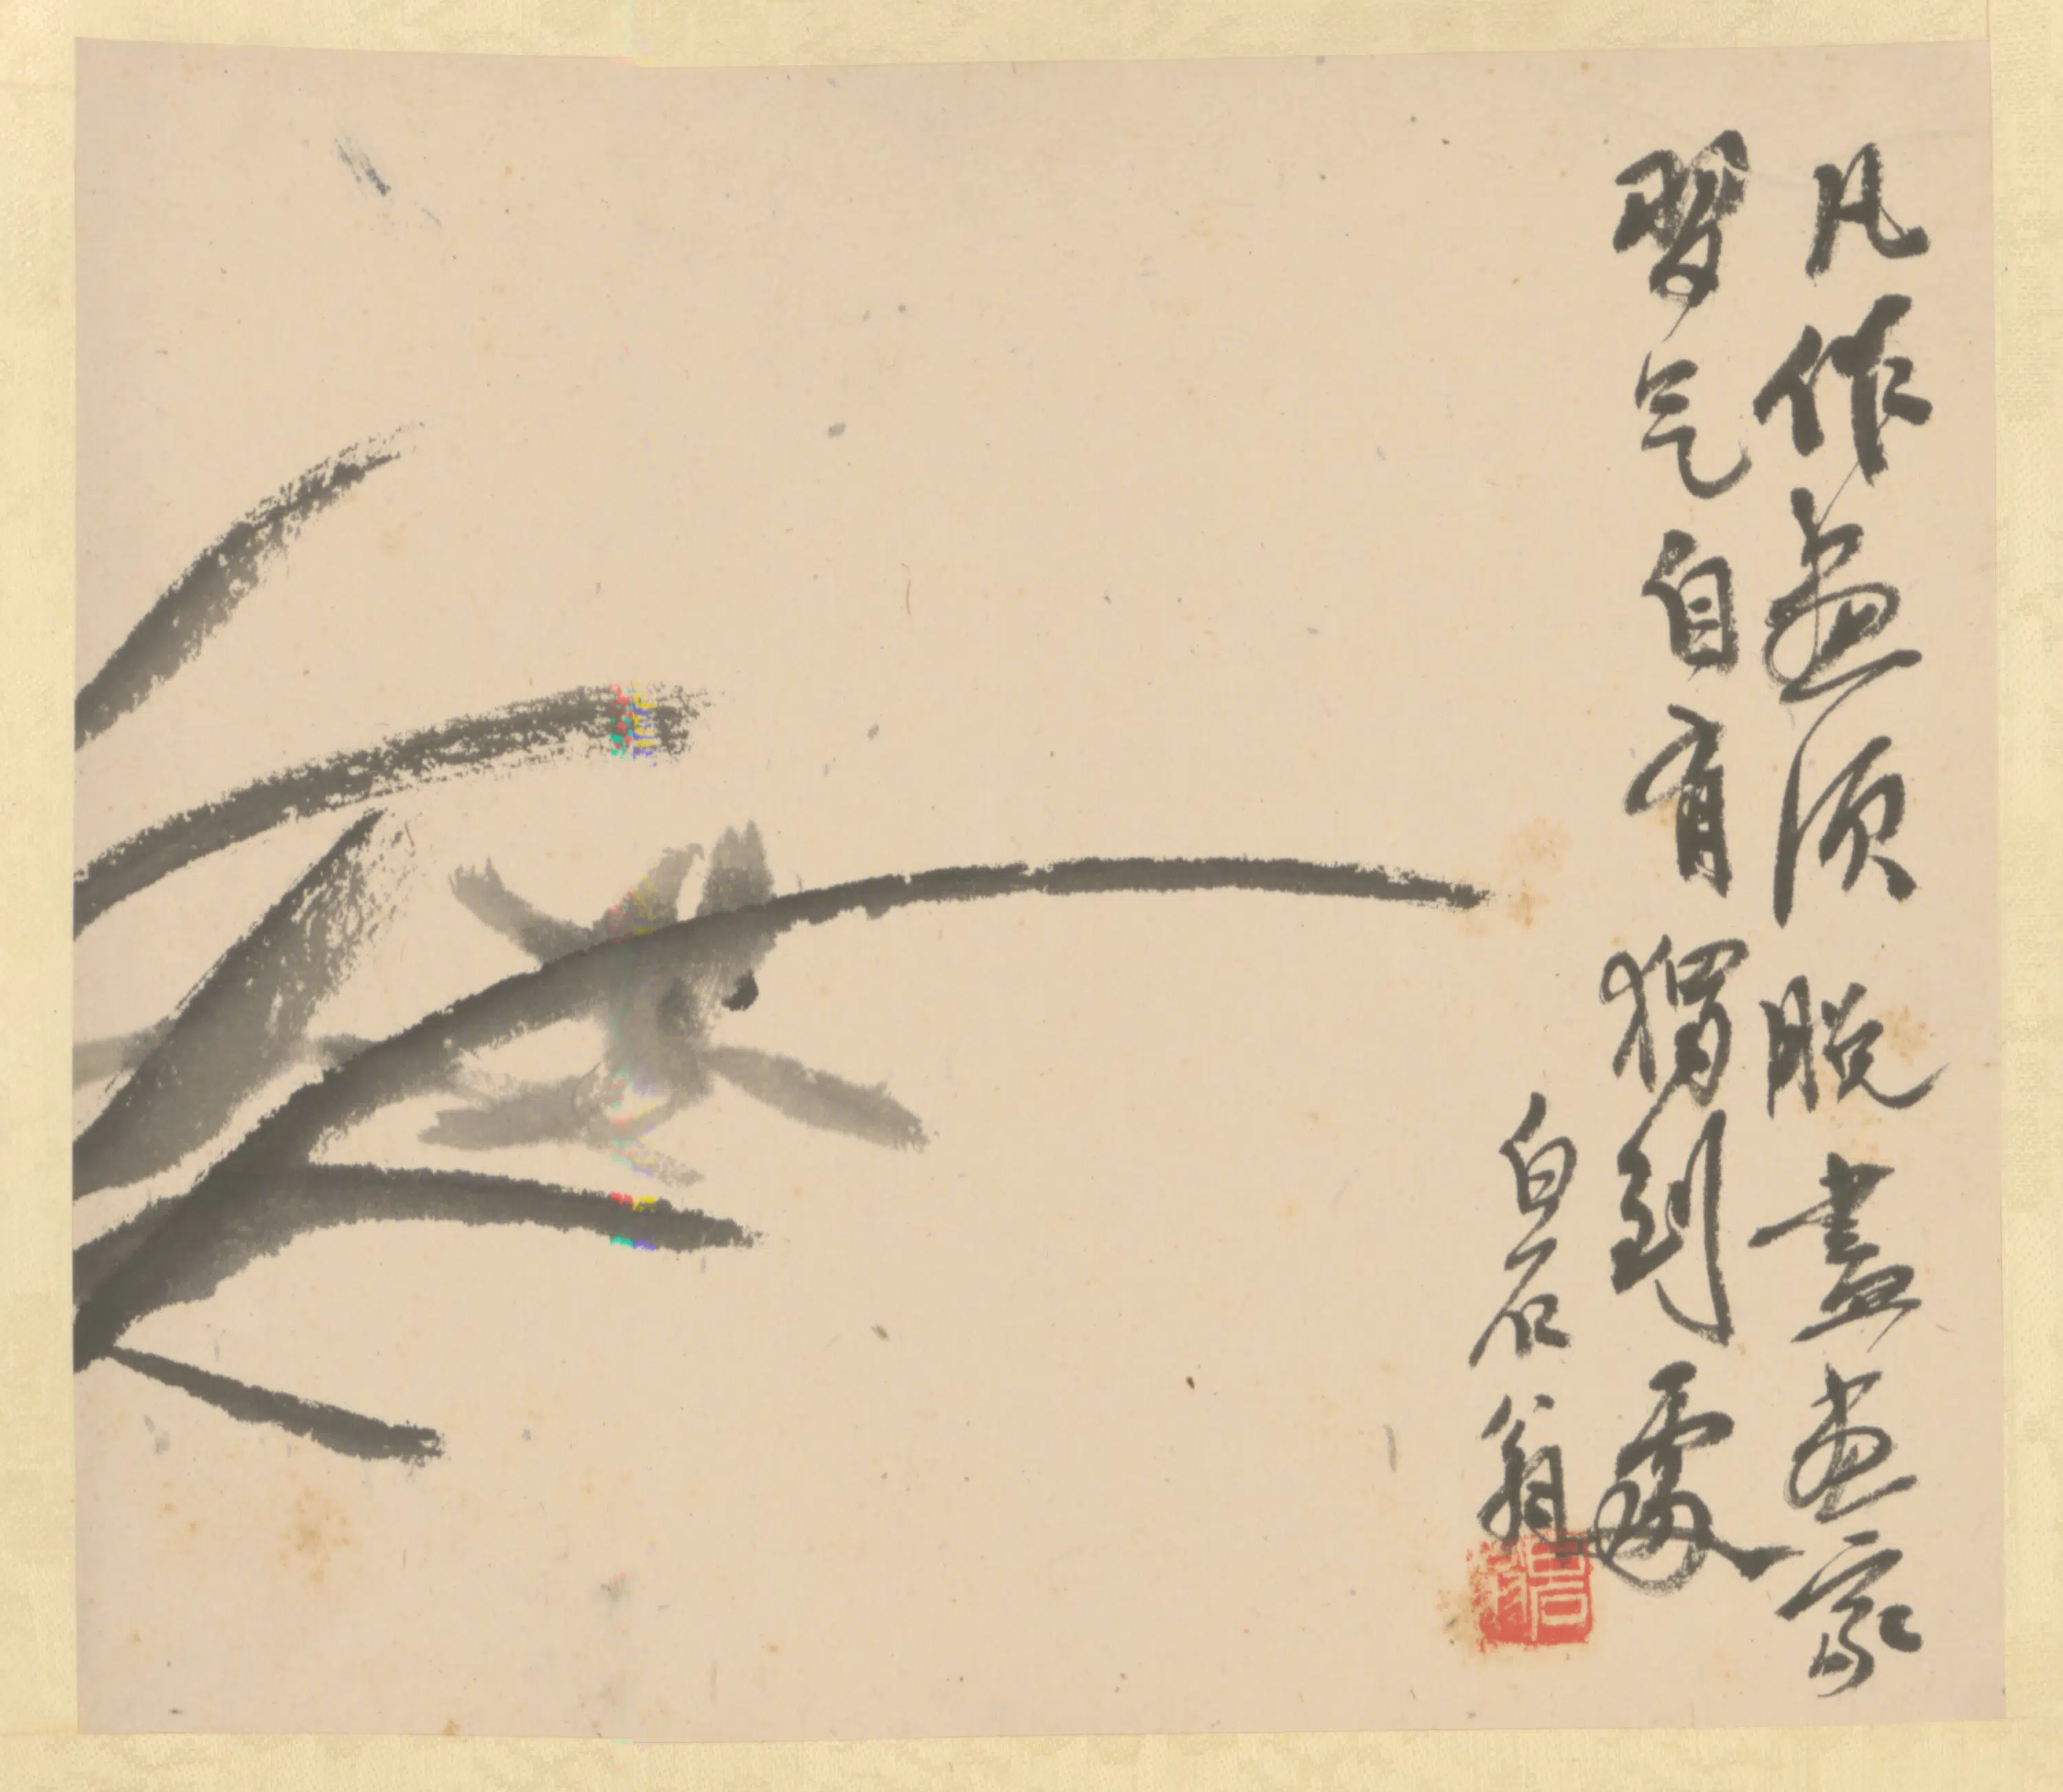 凡作画须脱盡画家
習气自有獨到處
白石翁